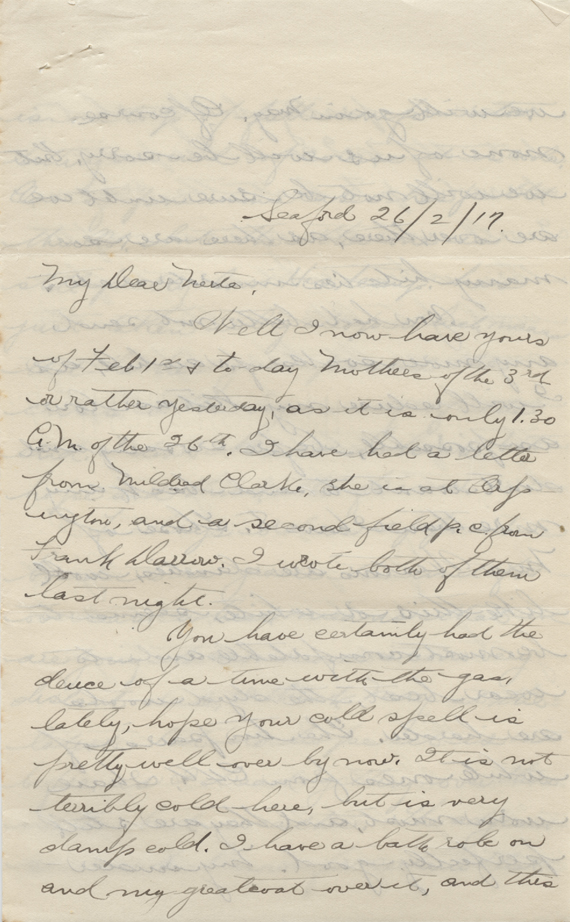 Seaford 26/2/17.
My Dear Nerta,
Well I now have yours
of Feb 1st & to day Mothers of the 3rd
or rather yesterday, as it is only 1.30
A.M. of the 26th. I have had a letter
from Mildred Clarke, she is at Orp
ington, and a second field p.c. from
Frank Darrow. I wrote both of them
last night.
You have certainly had the
deuce of a time with the gas,
lately, hope your cold spell is
pretty well over by now. It is not
terribly cold here, but is very
damp cold. I have a bath robe on
and my greatcoat over it, and this